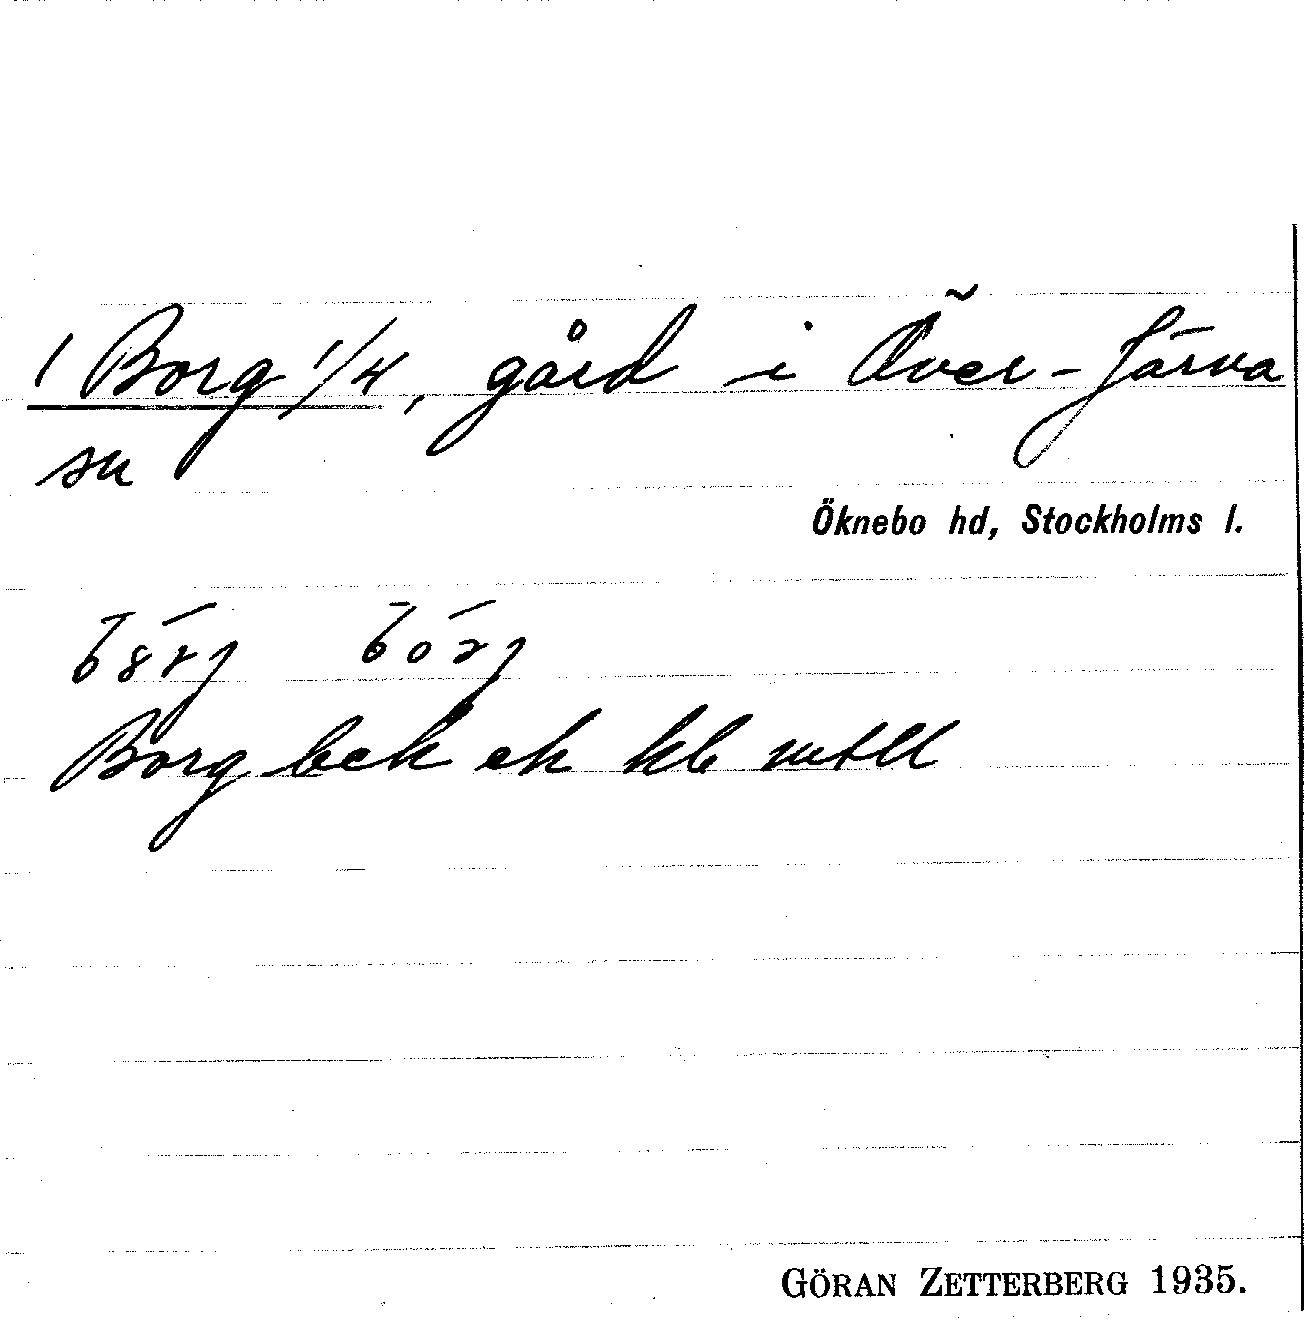 1 Borg 1/4, gård i Över-Järva
sn
Öknebo hd, Stockholms l.
Borg bek ek kb mtll
GÖRAN ZETTERBERG 1935.